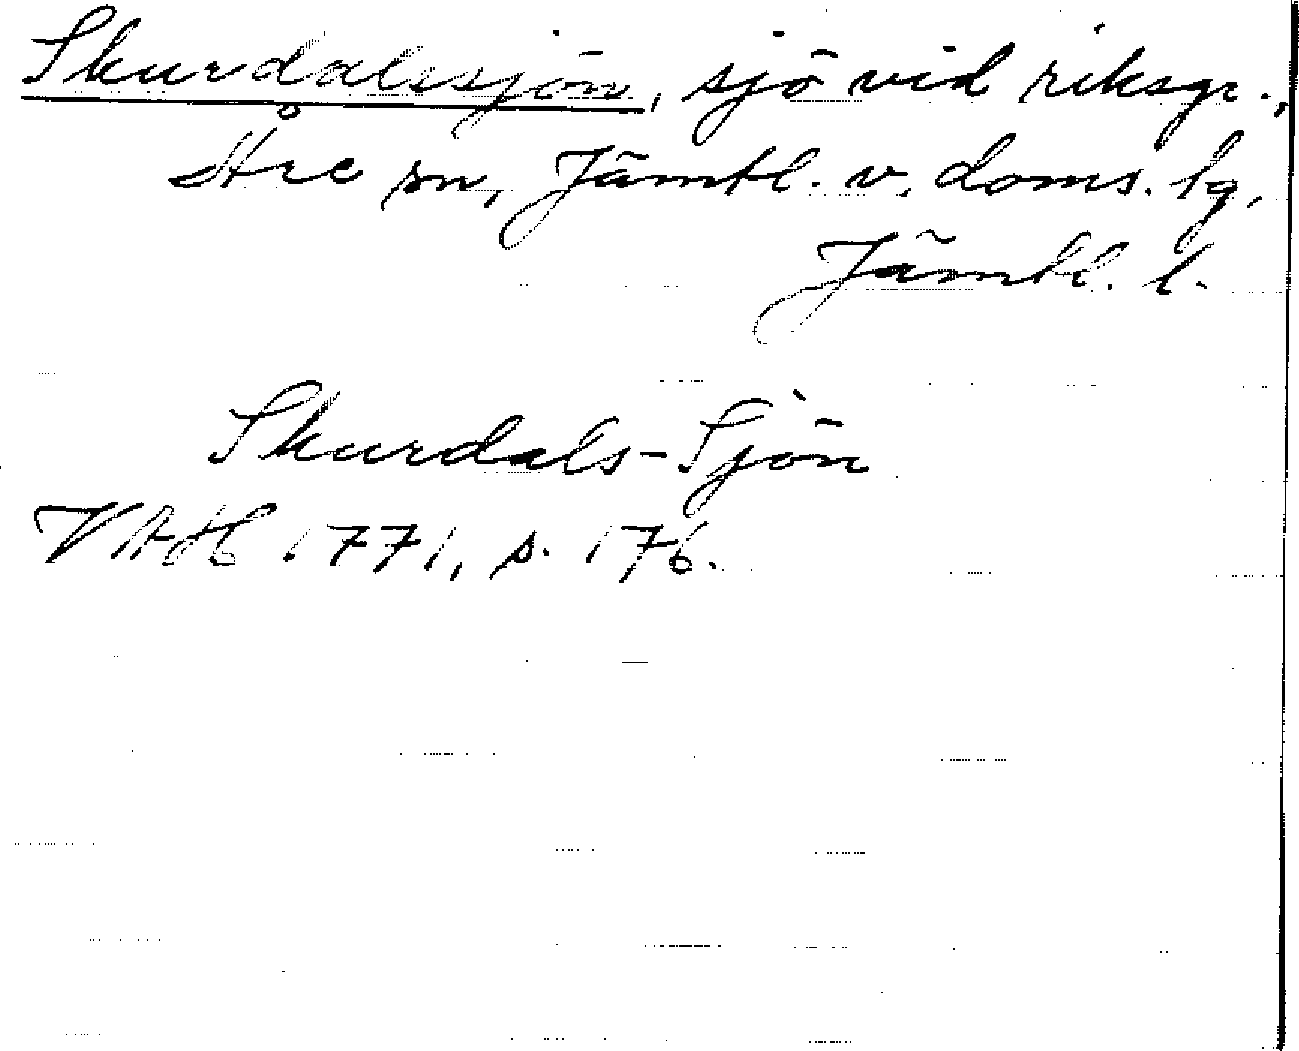 Skurdalssjön, sjö vid riksgr.,
Åre sn, Jämtl. v. doms. lg,
Jämtl. l.
Skurdals-Sjön
VAH 1771, s. 176.